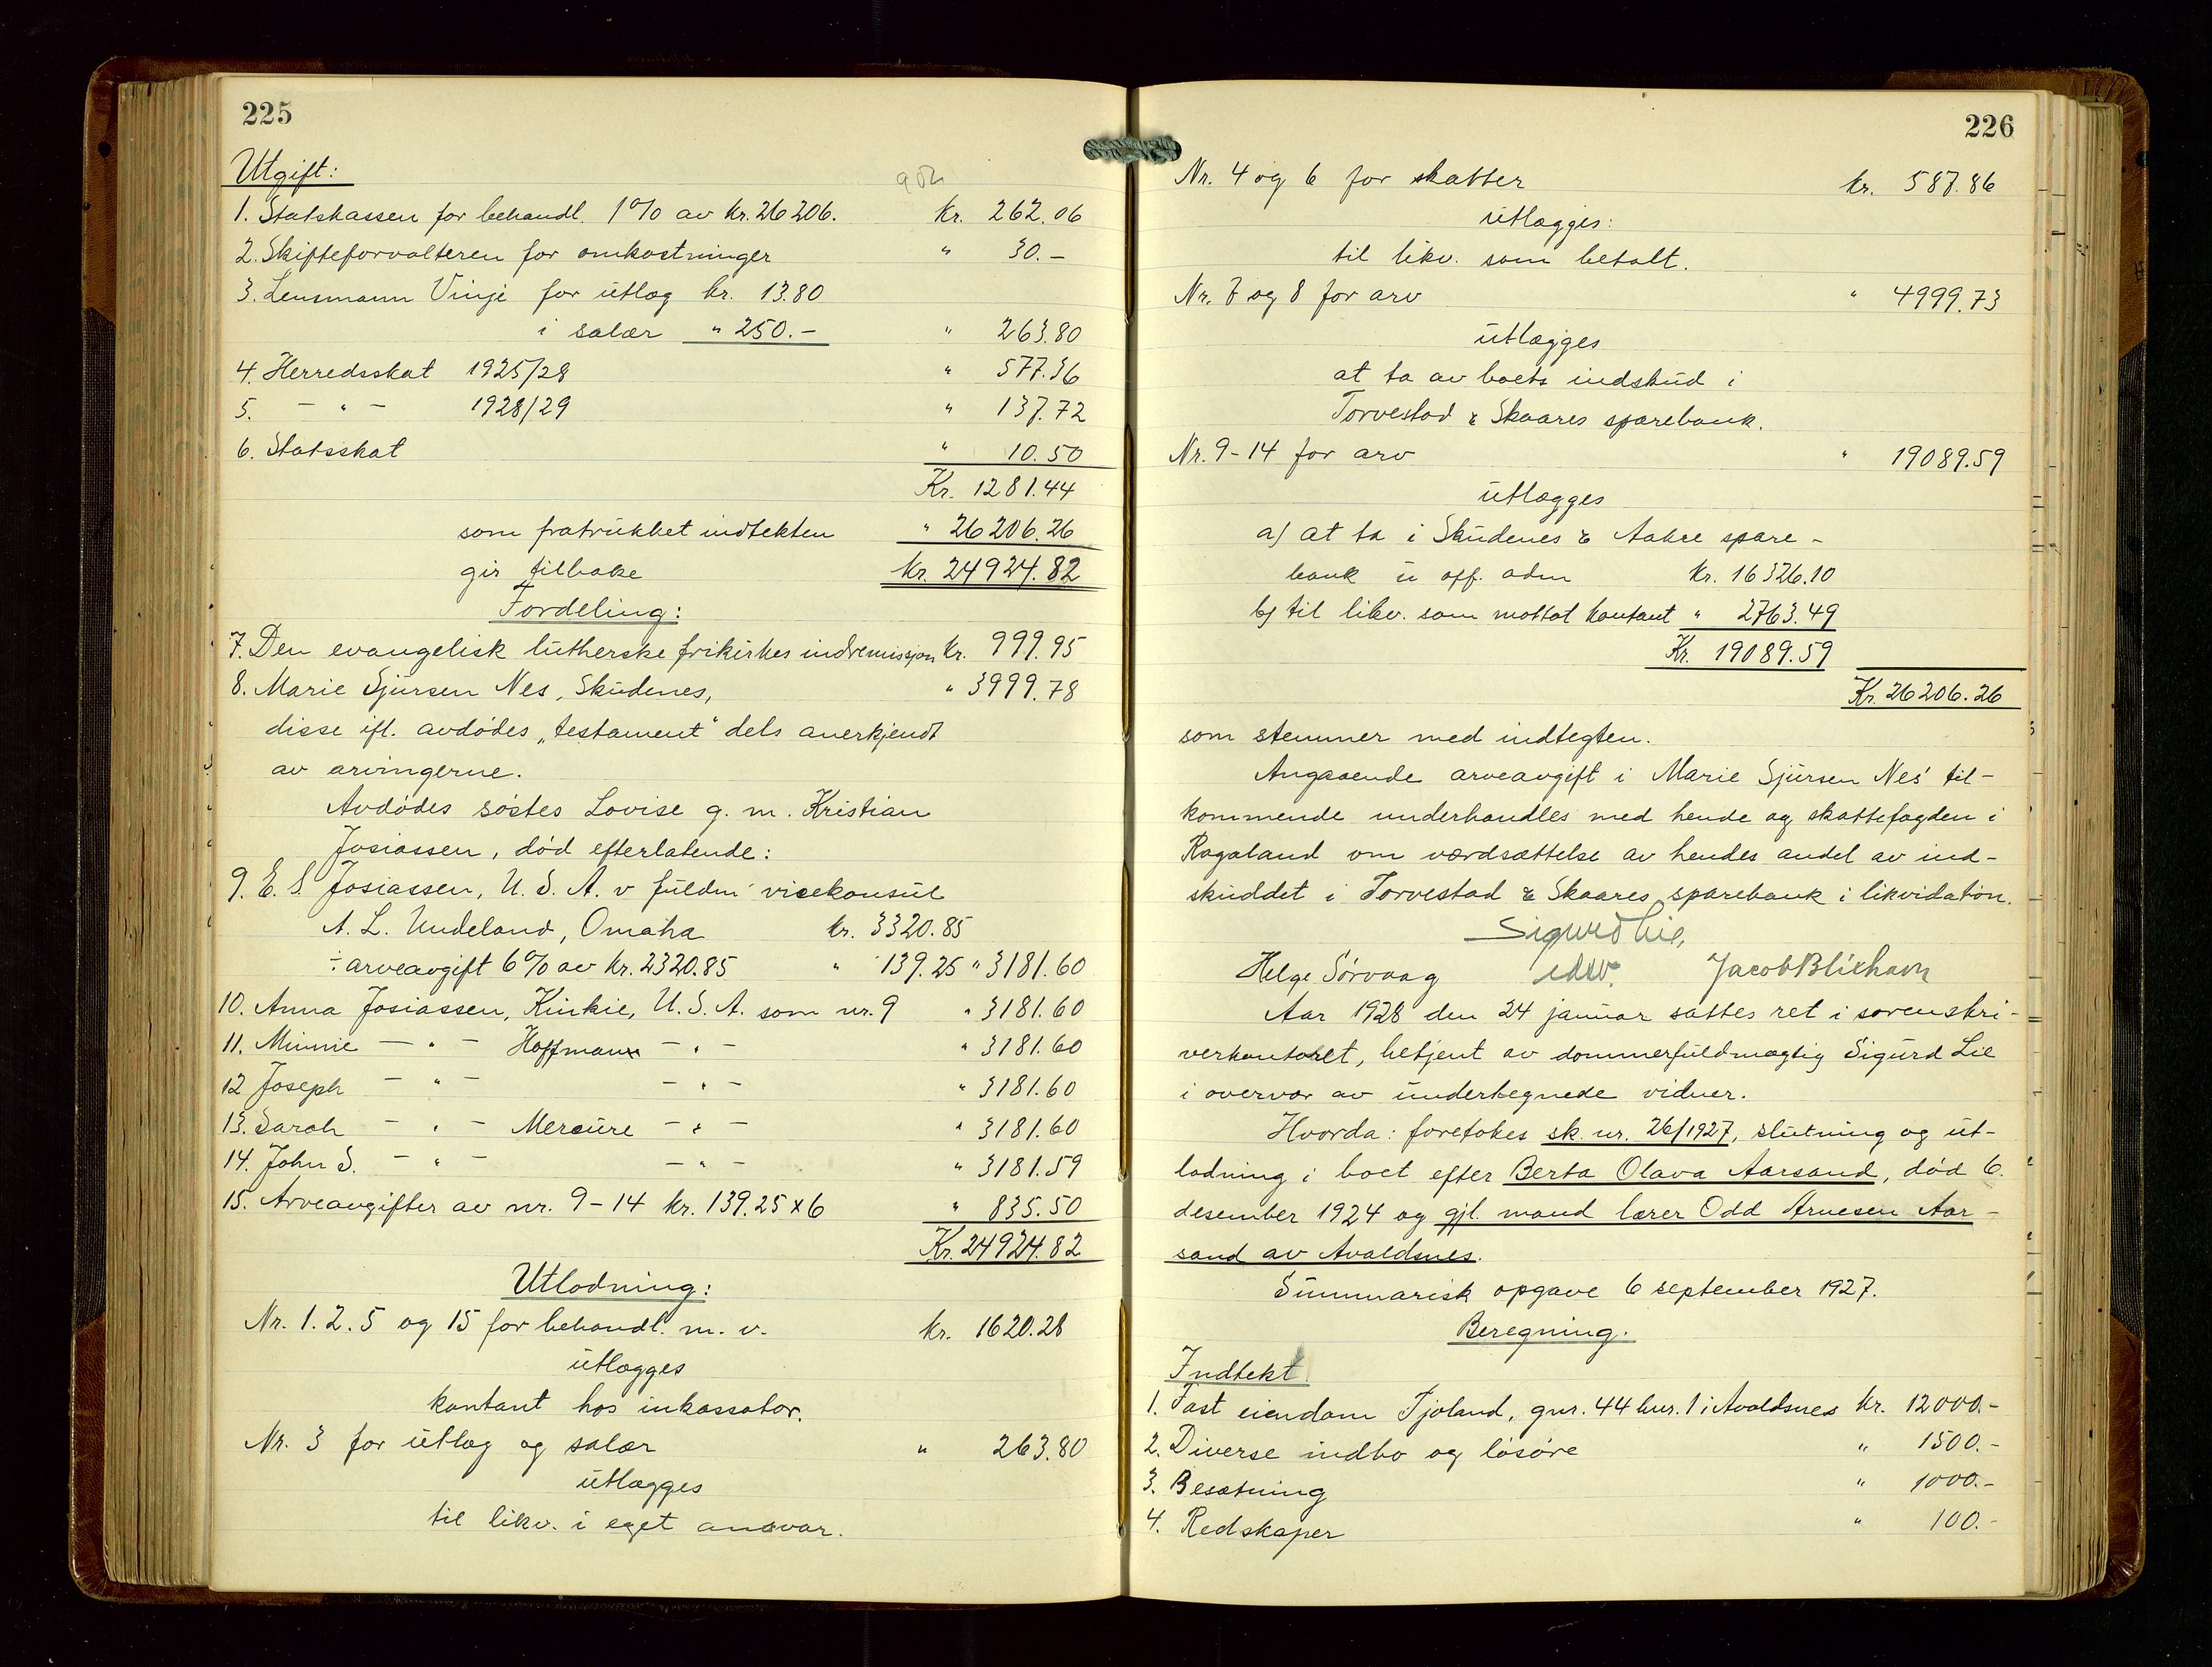 225
Utgift:
1. Statskassen for behandl. 1% av kr. 26206. kr. 262.06
2. Skifteforvalteren for omkostninger " 30.-
3. Lensmann Vinje for utlæg kr. 13.80
i salær " 250.- " 263.80
4. Herredsskat 1925/28 " 577.36
5. - " - 1928/29 " 137.72
6. Statsskat " 10.50
Kr. 1281.44
som fratrukket indtekten " 26206.26
gir tilbake kr. 24924.82
Fordeling:
7. Den evangelisk lutherske frikirkes indremissjon kr. 999.95
8. Marie Sjursen Nes, Skudenes, " 3999.78
disse ifl. avdødes „testament" dels anerkjendt
av arvingerne.
Avdødes søstes Lovise g. m. Kristian
Josiassen, død efterlatende:
9. E. S. Josiassen, U. S. A. v fuldm. visekonsul
A. L. Undeland, Omaha kr. 3320.85
÷ arveavgift 6% av kr. 2320.85 " 139.25 " 3181.60
10. Anna Josiassen, Kinkie, U. S. A. som nr. 9 " 3181.60
11. Minnie - " - Hoffmann - " - " 3181.60
12 Joseph - " - - " - " 3181.60
13. Sarah - " - Mercure - " - " 3181.60
14. John S. - " - - " - " 3181.59
15. Arveavgifter av nr. 9-14 kr. 139.25 x 6 " 835.50
Kr. 24924.82
Utlodning:
Nr. 1. 2. 5 og 15 for behandl. m. v. kr. 1620.28
utlægges
kontant hos inkassator.
Nr. 3 for utlæg og salær " 263.80
utlægges
til likv. i eget ansvar.
226
Nr. 4 og 6 for skatter kr. 587.86
utlægges:
til likv. som betalt.
Nr. 7 og 8 for arv " 4999.73
utlægges
at ta av boets indskud i
Torvestad & Skaares sparebank.
Nr. 9-14 for arv " 19089.59
utlægges
a) at ta i Skudenes & Aakre spare-
bank u off. adm kr. 16326.10
b) til likv. som mottat kontant " 2763.49
Kr. 19089.59
Kr. 26206.26
som stemmer med indtegten.
Angaaende arveavgift i Marie Sjursen Nes' til-
kommende underhandles med hende og skattefogden i
Rogaland om værdsættelse av hendes andel av ind-
skuddet i Torvestad & Skaares sparebank i likvidation.
Sigurd Lie,
Helge Sørvaag Jacob Blixhavn
Aar 1928 den 24 januar sattes ret i sorenskri-
verkontoret, betjent av dommerfuldmægtig Sigurd Lie
i overvær av undertegnede vidner.
Hvorda: foretokes sk. nr. 26/1927, slutning og ut-
lodning i boet efter Berta Olava Aarsand, død 6.
desember 1924 og gjl. mand lærer Odd Arnesen Aar-
sand av Avaldsnes.
Summarisk opgave 6 september 1927.
Beregning.
Indtekt
1. Fast eiendom Tjoland, gnr. 44 bnr. 1 i Avaldsnes kr. 12000.-
2. Diverse indbo og løsøre " 1500.-
3. Besætning " 1000.-
4. Redskaper " 100.-